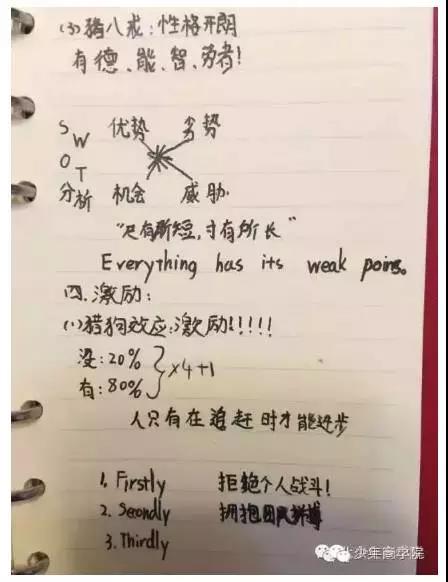 (3)猪八戒:性格开朗
有德、能、智、勇者!
S W 优势 劣势
O T
分析 机会 威胁.
"尺有所短,寸有所长"
Everything has its weak poins。
四.激励:
(1)猎狗效应:激励!!!!!
没:20%
有:80% }×4+1
人只有在追赶时才能进步
1. Firstly 拒绝个人战斗!
2. Seondly 拥抱团队拼搏
3. Thirdly
少年商学院